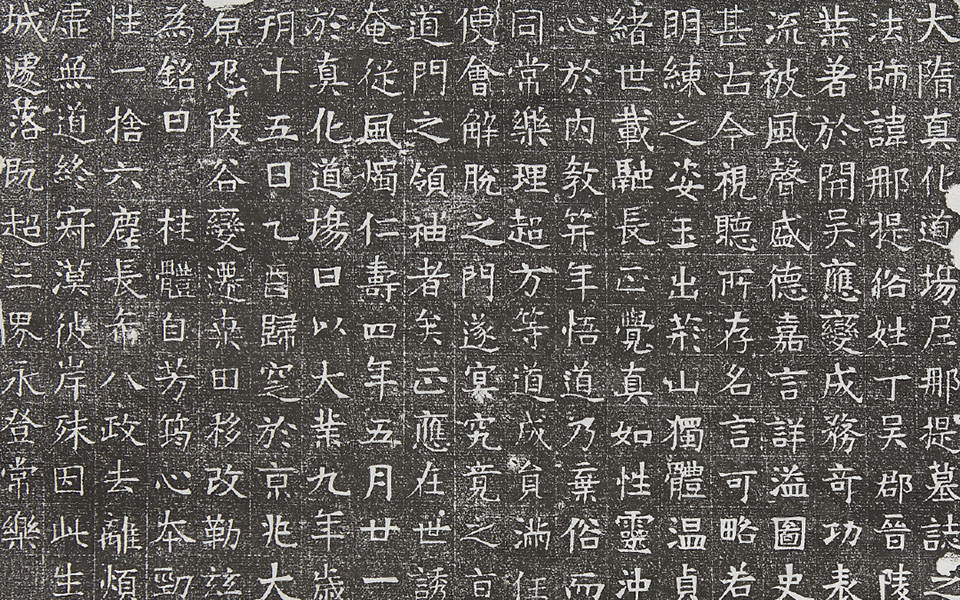 大隋真化道場尼那提墓誌之
法師諱那提俗姓丁吳郡晉陵
業著於開吳應變成務奇功表
流被風聲盛德嘉言詳溢圖史
甚古今視聽所存名言可略若
明練之姿玉出荊山獨體温貞
緒世載融長正覺真如性靈沖
心於內教笄年悟道乃棄俗而
同常樂理超方等道成員滿任
便會解脫之門遂冥究竟之旨
道門之領袖者矣正應在世誘
奄從風燭仁壽四年五月廿一
於真化道場曰以大業九年歲
朔十五日乙酉歸窆於京兆大
原恐陵谷變遷桒田移改勒玆
為銘曰 桂體自芳筠心本勁
性一捨六塵長希八政去離煩
虛無道終寂漠彼岸殊因此生
城遽落既超三界永登常樂